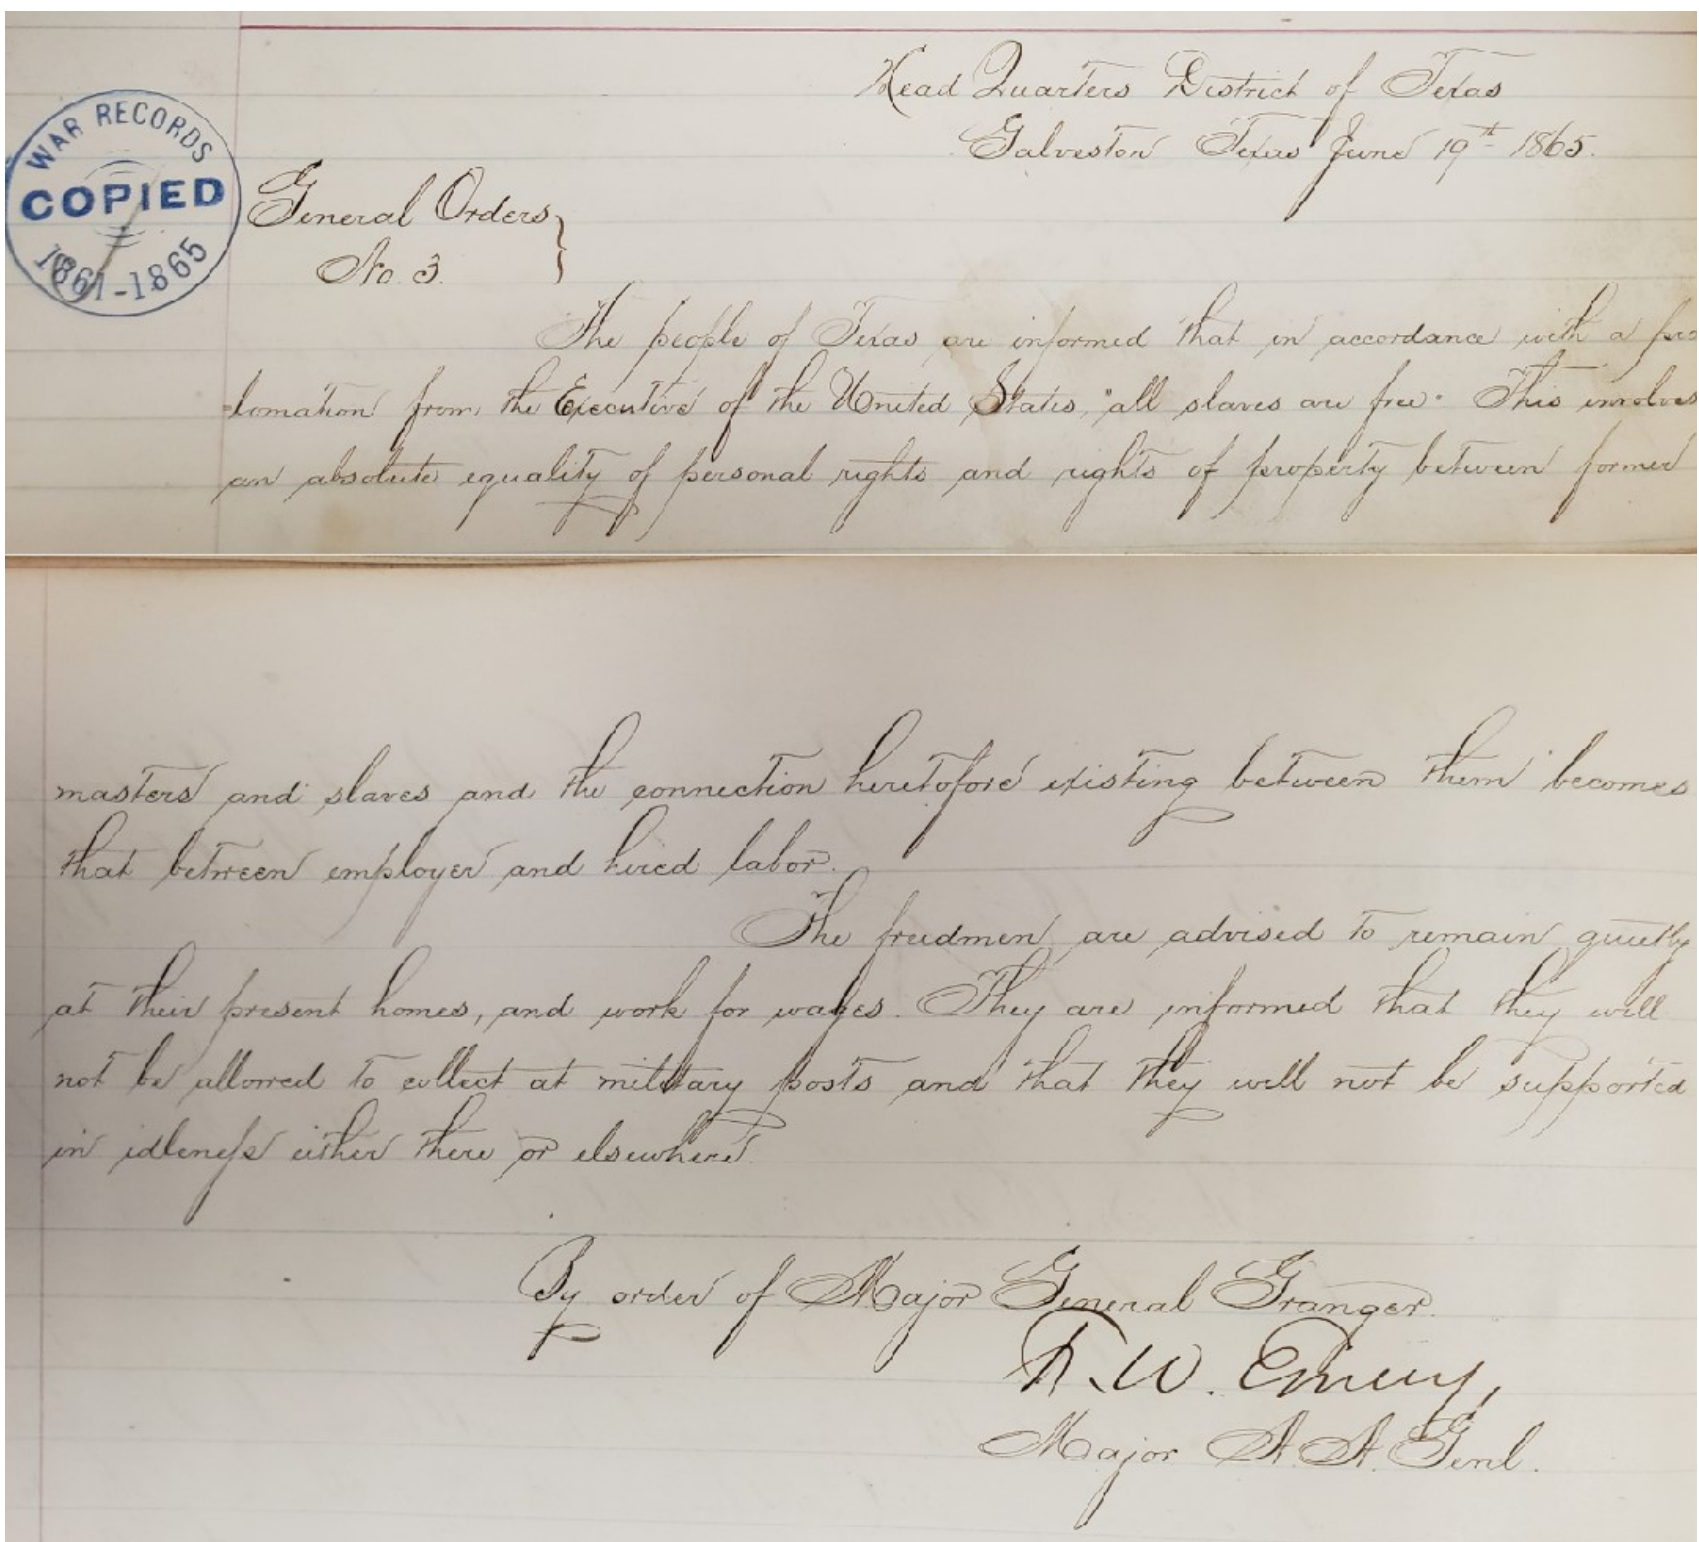 Head Quarters District of Texas
Galveston Texas June 19th 1865.
WAR RECORDS
COPIED
1861-1865
General Orders
No. 3.
The people of Texas are informed that in accordance with a pro
clamation from the Executive of the United States, "all slaves are free" This involves
an absolute equality of personal rights and rights of property between former
masters and slaves and the connection heretofore existing between them becomes
that between employer and hired labor.
The freedmen are advised to remain quietly
at their present homes, and work for wages. They are informed that they will
not be allowed to collect at military posts and that they will not be supported
in idleness either there or elsewhere
By order of Major General Granger
F. W. Emery,
Major A. A. Genl.